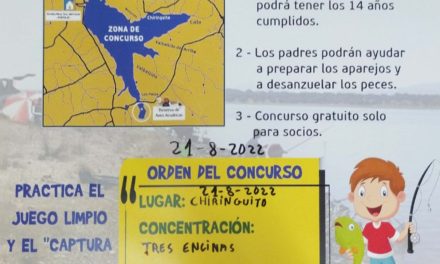 podrá tener los 14 años
cumplidos.
2 - Los padres podrán ayudar
a preparar los aparejos y
a desanzuelar los peces.
3 - Concurso gratuito solo
para socios.
Chiringito
ZONA DE
CONCURSO
21-8-2022
ORDEN DEL CONCURSO
21-8-2022
LUGAR: CHIRINGUITO
CONCENTRACIÓN:
TRES ENCINAS
PRACTICA EL
JUEGO LIMPIO
Y EL "CAPTURA